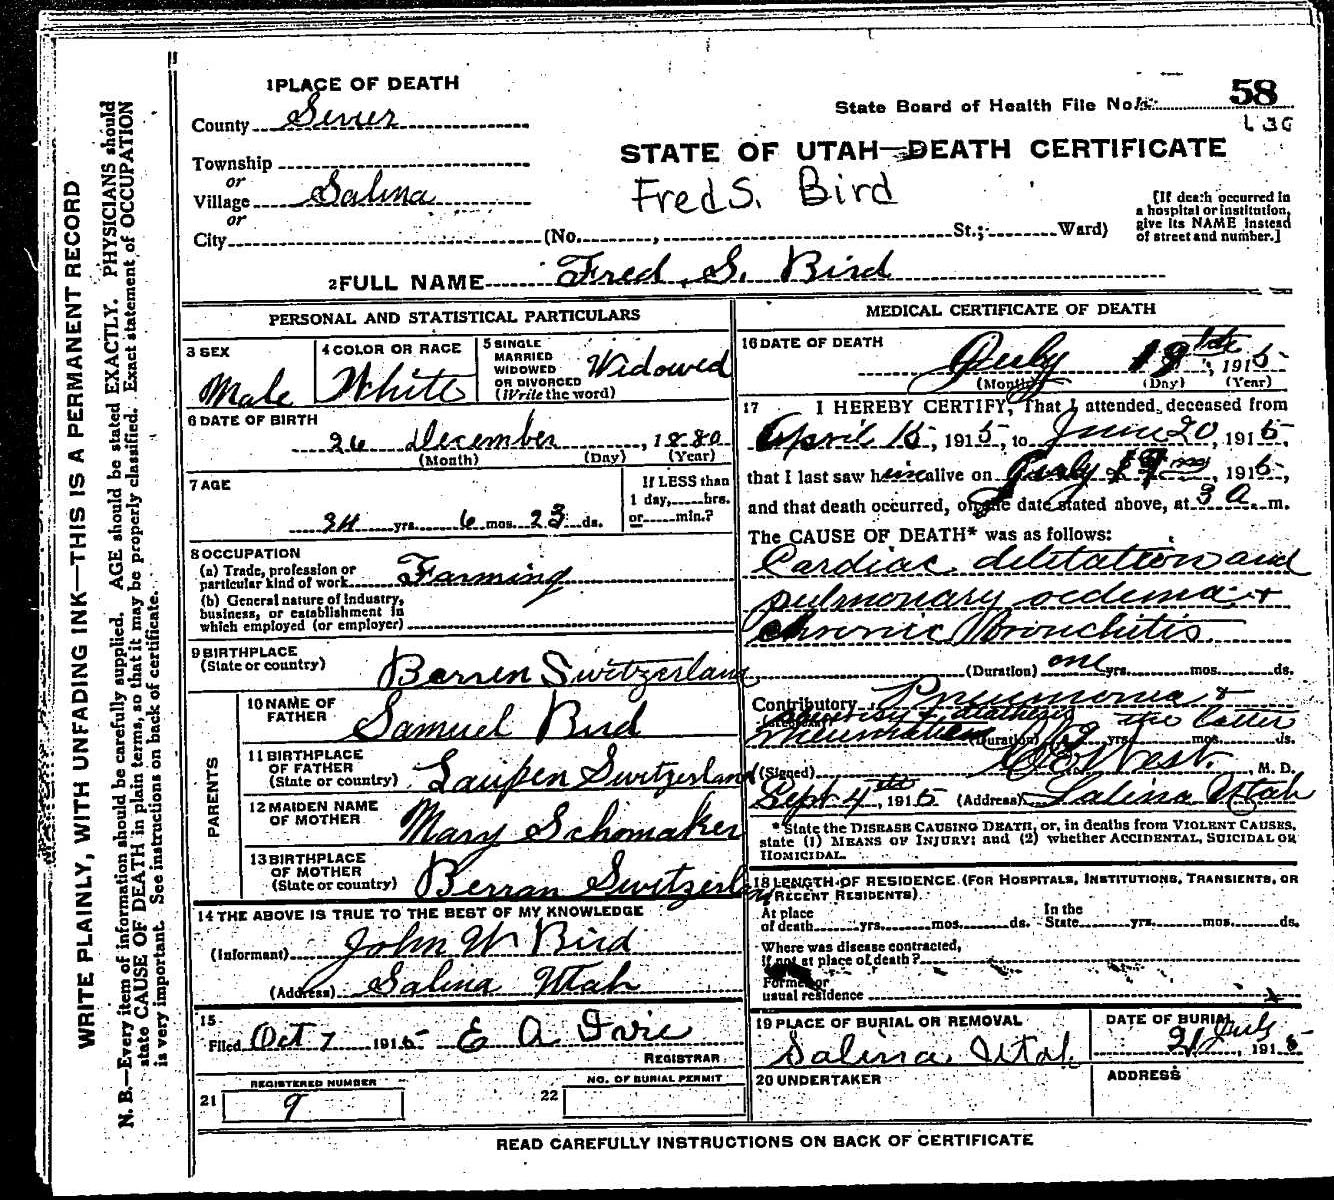 1 PLACE OF DEATH
County Sevier
Township
or
Village Salina
or
City (No. , St.; Ward)
State Board of Health File No. 58
L 30
STATE OF UTAH—DEATH CERTIFICATE
Fred S. Bird
[If death occurred in
a hospital or institution,
give its NAME instead
of street and number.]
2 FULL NAME Fred S. Bird
PERSONAL AND STATISTICAL PARTICULARS
3 SEX
Male
4 COLOR OR RACE
White
5 SINGLE
MARRIED
WIDOWED
OR DIVORCED
(Write the word)
Widowed
6 DATE OF BIRTH
26 December , 1880
(Month) (Day) (Year)
7 AGE
34 yrs. 6 mos. 23 ds.
If LESS than
1 day, hrs.
or min.?
8 OCCUPATION
(a) Trade, profession or
particular kind of work Farming
(b) General nature of industry,
business, or establishment in
which employed (or employer)
9 BIRTHPLACE
(State or country) Berren Switzerland
PARENTS
10 NAME OF
FATHER Samuel Bird
11 BIRTHPLACE
OF FATHER
(State or country) Laupen Switzerland
12 MAIDEN NAME
OF MOTHER Mary Schomaker
13 BIRTHPLACE
OF MOTHER
(State or country) Berran Switzerland
14 THE ABOVE IS TRUE TO THE BEST OF MY KNOWLEDGE
(Informant) John W Bird
(Address) Salina Utah
15
Filed Oct 7 1915 E A Ivie
REGISTRAR
21 REGISTERED NUMBER
9
22 NO. OF BURIAL PERMIT
MEDICAL CERTIFICATE OF DEATH
16 DATE OF DEATH
July 19 , 1915
(Month) (Day) (Year)
17 I HEREBY CERTIFY, That I attended deceased from
April 15, 1915, to June 20, 1915,
that I last saw him alive on July 19, 1915,
and that death occurred, on the date stated above, at 3 a. m.
The CAUSE OF DEATH* was as follows:
Cardiac dilitation and
pulmonary oedema +
chronic Bronchitis
(Duration) one yrs. mos. ds.
Contributory Pneumonia +
the latter
rheumatism (Duration) yrs. mos. ds.
(Signed) West. , M. D.
Sept 4th, 1915 (Address) Salina Utah
*State the DISEASE CAUSING DEATH, or, in deaths from VIOLENT CAUSES,
state (1) MEANS OF INJURY; and (2) whether ACCIDENTAL, SUICIDAL OR
HOMICIDAL.
18 LENGTH OF RESIDENCE (FOR HOSPITALS, INSTITUTIONS, TRANSIENTS, OR
RECENT RESIDENTS)
At place
of death yrs. mos. ds.
In the
State yrs. mos. ds.
Where was disease contracted,
If not at place of death?
Former or
usual residence
19 PLACE OF BURIAL OR REMOVAL
Salina Utah
DATE OF BURIAL
21 July , 1915
20 UNDERTAKER
ADDRESS
READ CAREFULLY INSTRUCTIONS ON BACK OF CERTIFICATE
WRITE PLAINLY, WITH UNFADING INK—THIS IS A PERMANENT RECORD
N. B.—Every item of information should be carefully supplied. AGE should be stated EXACTLY. PHYSICIANS should
state CAUSE OF DEATH in plain terms, so that it may be properly classified. Exact statement of OCCUPATION
is very important. See instructions on back of certificate.